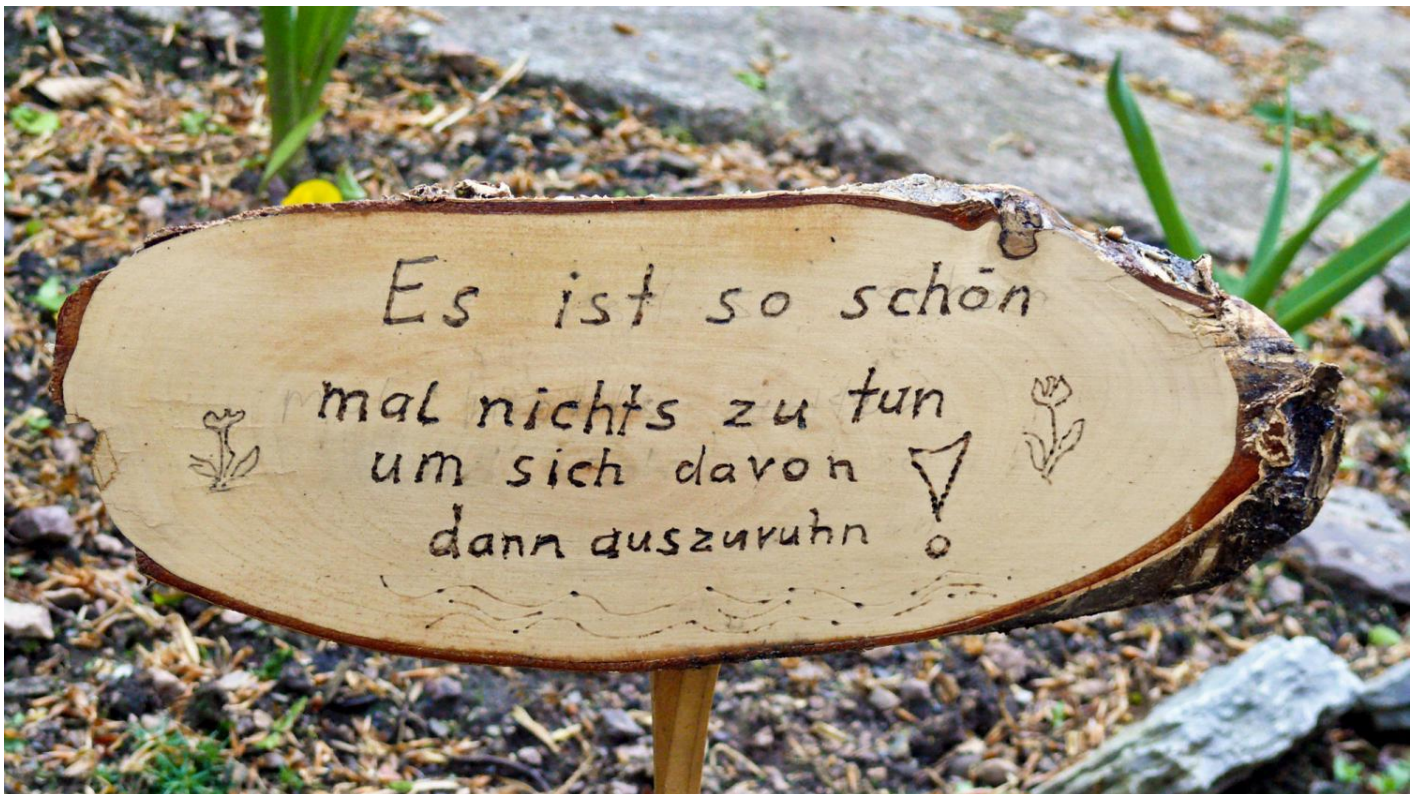 Es ist so schön
mal nichts zu tun
um sich davon
dann auszuruhn!